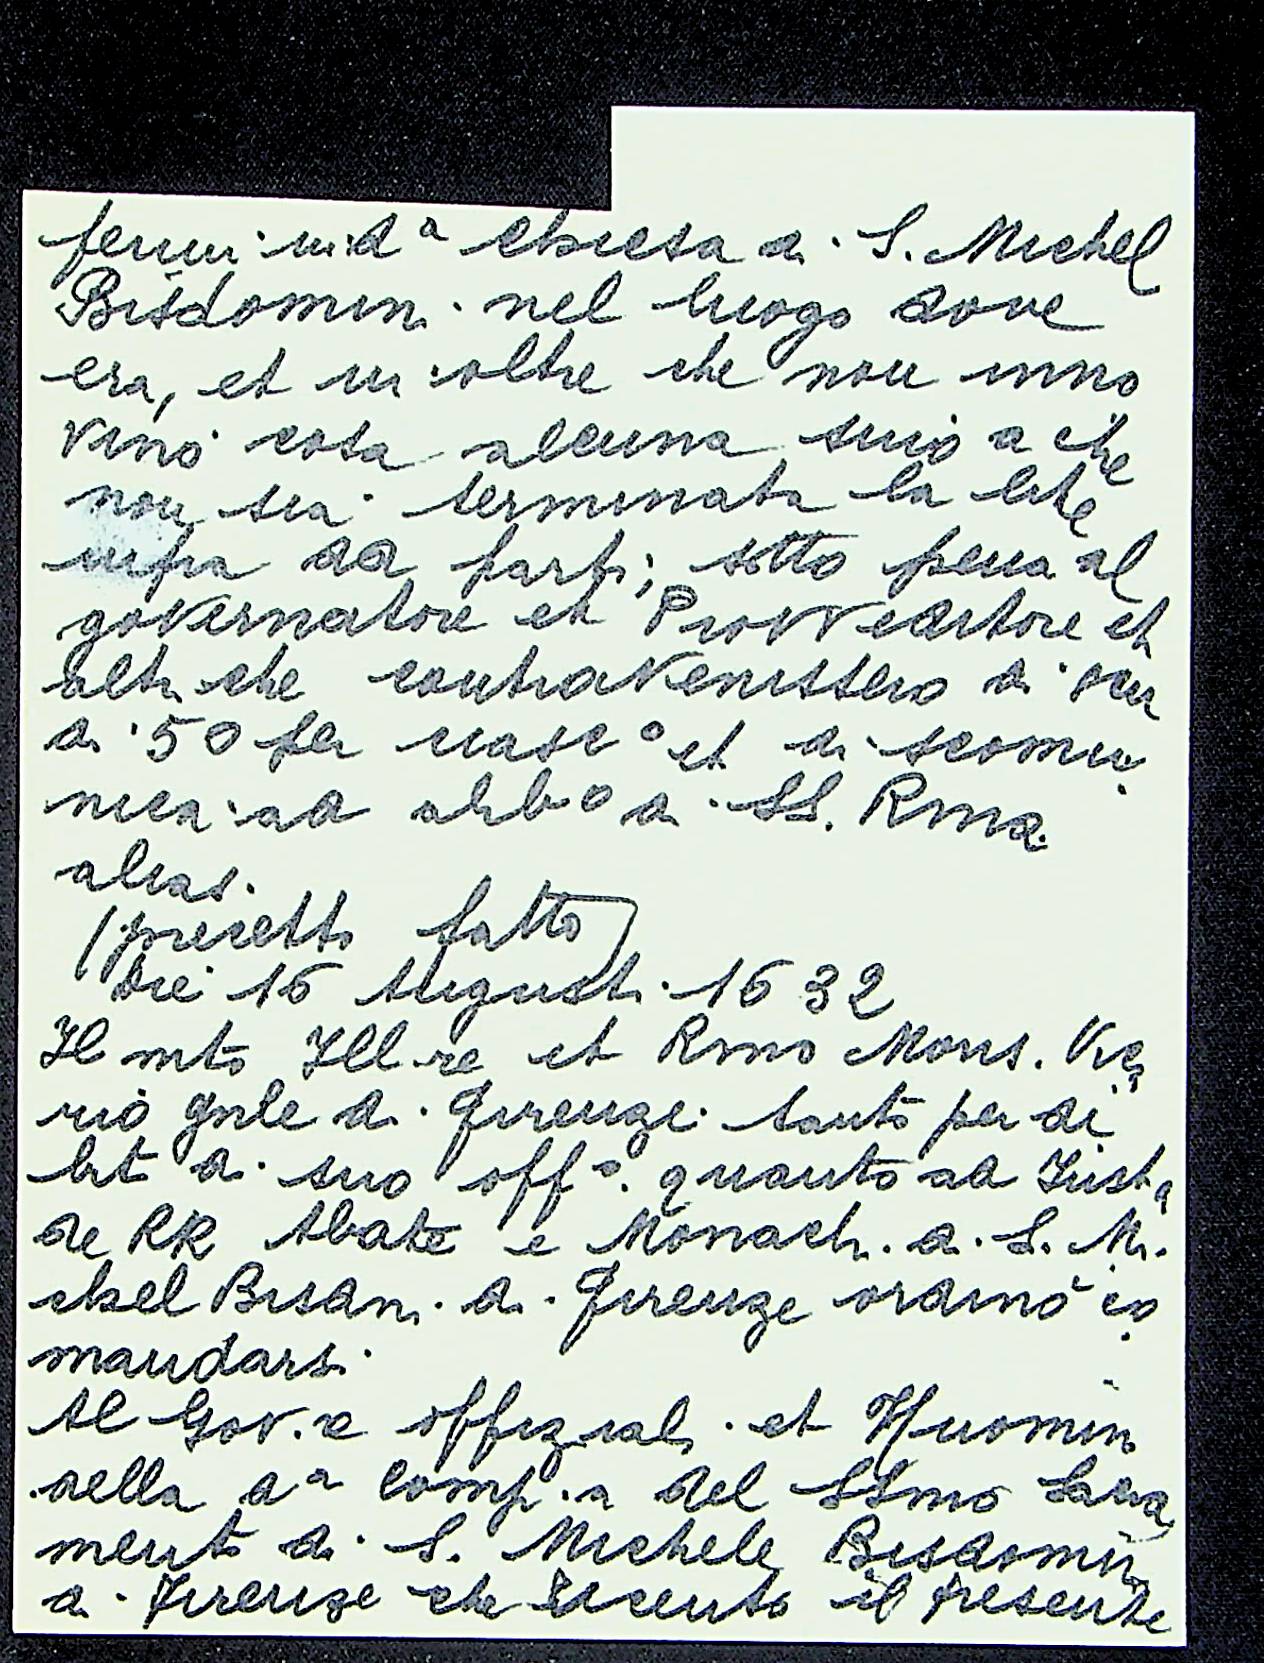 fermi in da chiesa di S. Michel
Bisdomini nel luogo dove
era, et in oltre che non inno
vino cosa alcuna sino a che
non sia terminata la lite
infra dd parti; sotto pena al
governatore et Provveditore et
altri che contravenissero di scu
di 50 per ciasco et di scomu
nica ad arbo di SS. Rma.
alias.
(precetto fatto)
Die 16 Augusti 1632
Il mto Ill.re et Rmo Mons. Vica
rio gnle di Firenze tanto per de
bit di suo offo. quanto ad Insta
de RR Abate e Monach. di S. Mi
chel Bisdni. di Firenze ordinò co
mandarsi.
Al Gov.re offiziali et Huomini
della da Comp.a del SSmo Sacra
mento di S. Michele Bisdomini
di Firenze che il presente